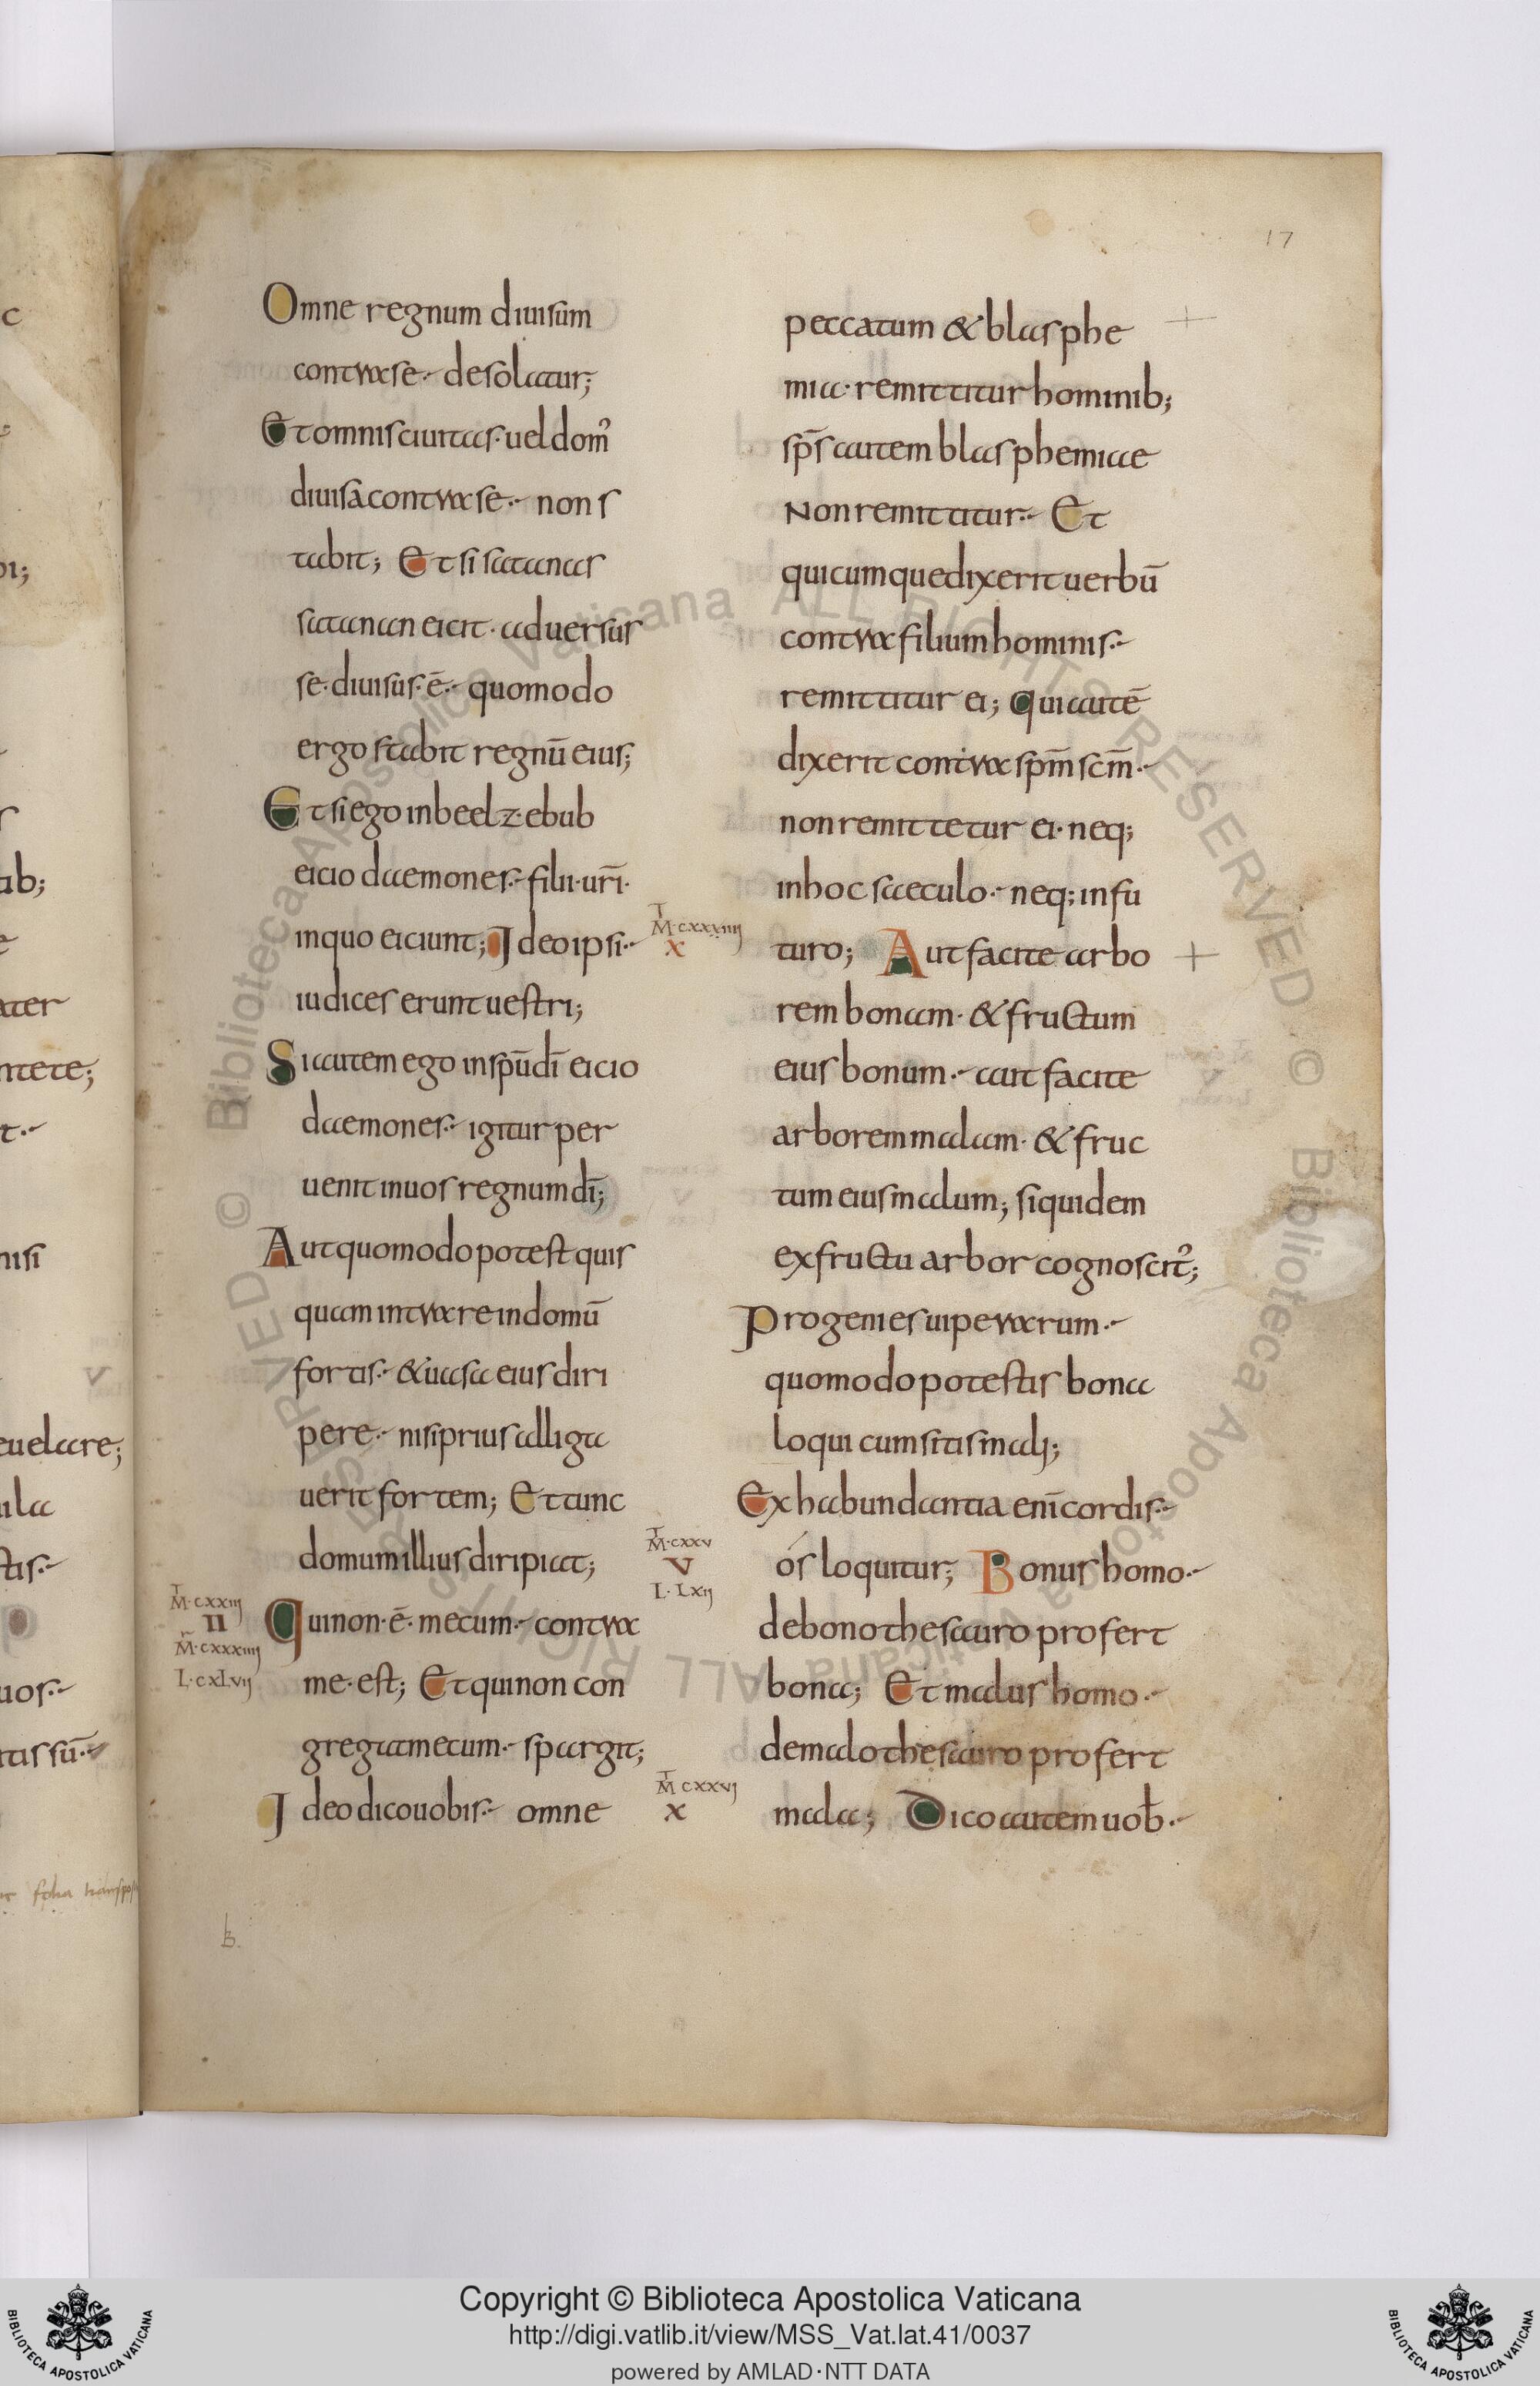 17
Omne regnum diuisum
contra se·- desolatur;
Et omnis ciuitas· uel dom᾽
diuisa contra se·- non s
tabit; Et si satanas
satanan eicit· aduersus
se· diuisus· ē·- quomodo
ergo stabit regnū eius;
Et si ego in beelzebub
eicio daemones·- filii· ur̄i·
in quo eiciunt; Ideo ipsi·-
iudices erunt uestri;
Si autem ego in sp̄u dī eicio
daemones·- igitur per
uenit in uos regnum dī;
Aut quomodo potest quis
quam intrare in domū
fortis·- & uasa eius diri
pere·- nisi prius alliga
uerit fortem; Et tunc
domum illius diripiat;
M·cxxiij
II
M·cxxxiiij
L·cxLvij
Qui non· ē· mecum·- contra
me· est; Et qui non con
gregat mecum·- spargit;
Ideo dico uobis·- omne
peccatum & blasphe
mia· remittitur hominib;
sp̄s autem blasphemiae
Non remittitur·- Et
quicumque dixerit uerbū
contra filium hominis·-
remittitur ei; qui autē
dixerit contra sp̄m sc̄m·-
non remittetur ei· neq;
in hoc saeculo·- neq; in fu
M·cxxxiiij
X
turo; Aut facite arbo
rem bonam· & fructum
eius bonum·- aut facite
arborem malam· & fruc
tum eius malum; siquidem
ex fructu arbor cognoscit᾽;
Progenies uiperarum·-
quomodo potestis bona
loqui cum sitis malj;
Ex habundantia enī cordis·-
M·cxxv
V
L·Lxij
ós loquitur; Bonus homo·-
de bono thesauro profert
bona; Et malus homo·-
de malo thesauro profert
M cxxvj
X
mala; Dico autem uob̄·-
b.
Copyright © Biblioteca Apostolica Vaticana
http://digi.vatlib.it/view/MSS_Vat.lat.41/0037
powered by AMLAD·NTT DATA